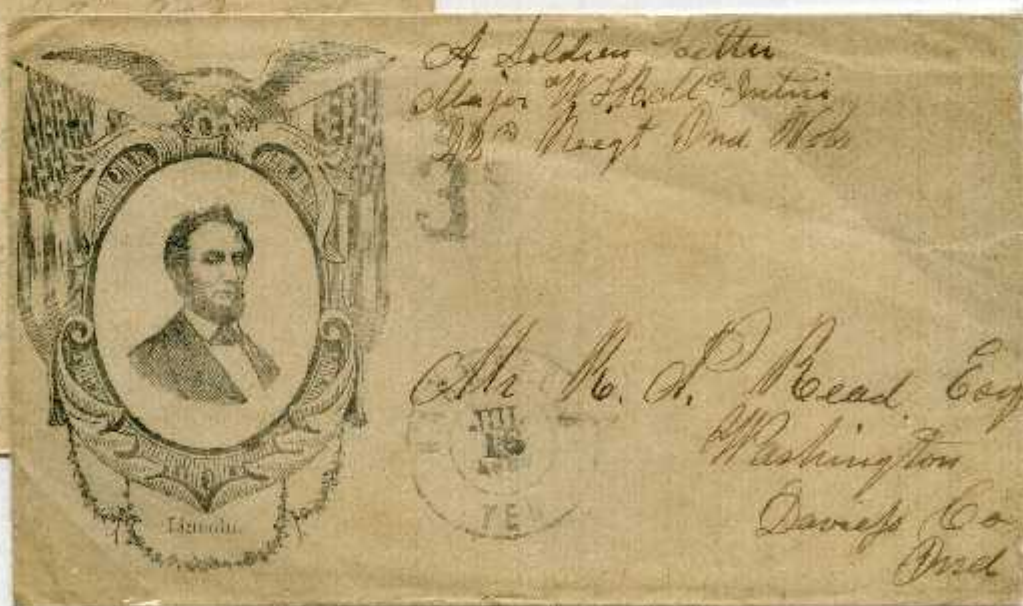 A Soldiers Letter
Major W. J. B. Mc
Regt Ind Vols
3
Mr R. N. Read, Esq
Washington
Daviess Co
Ind
JUL
TEN
Lincoln.